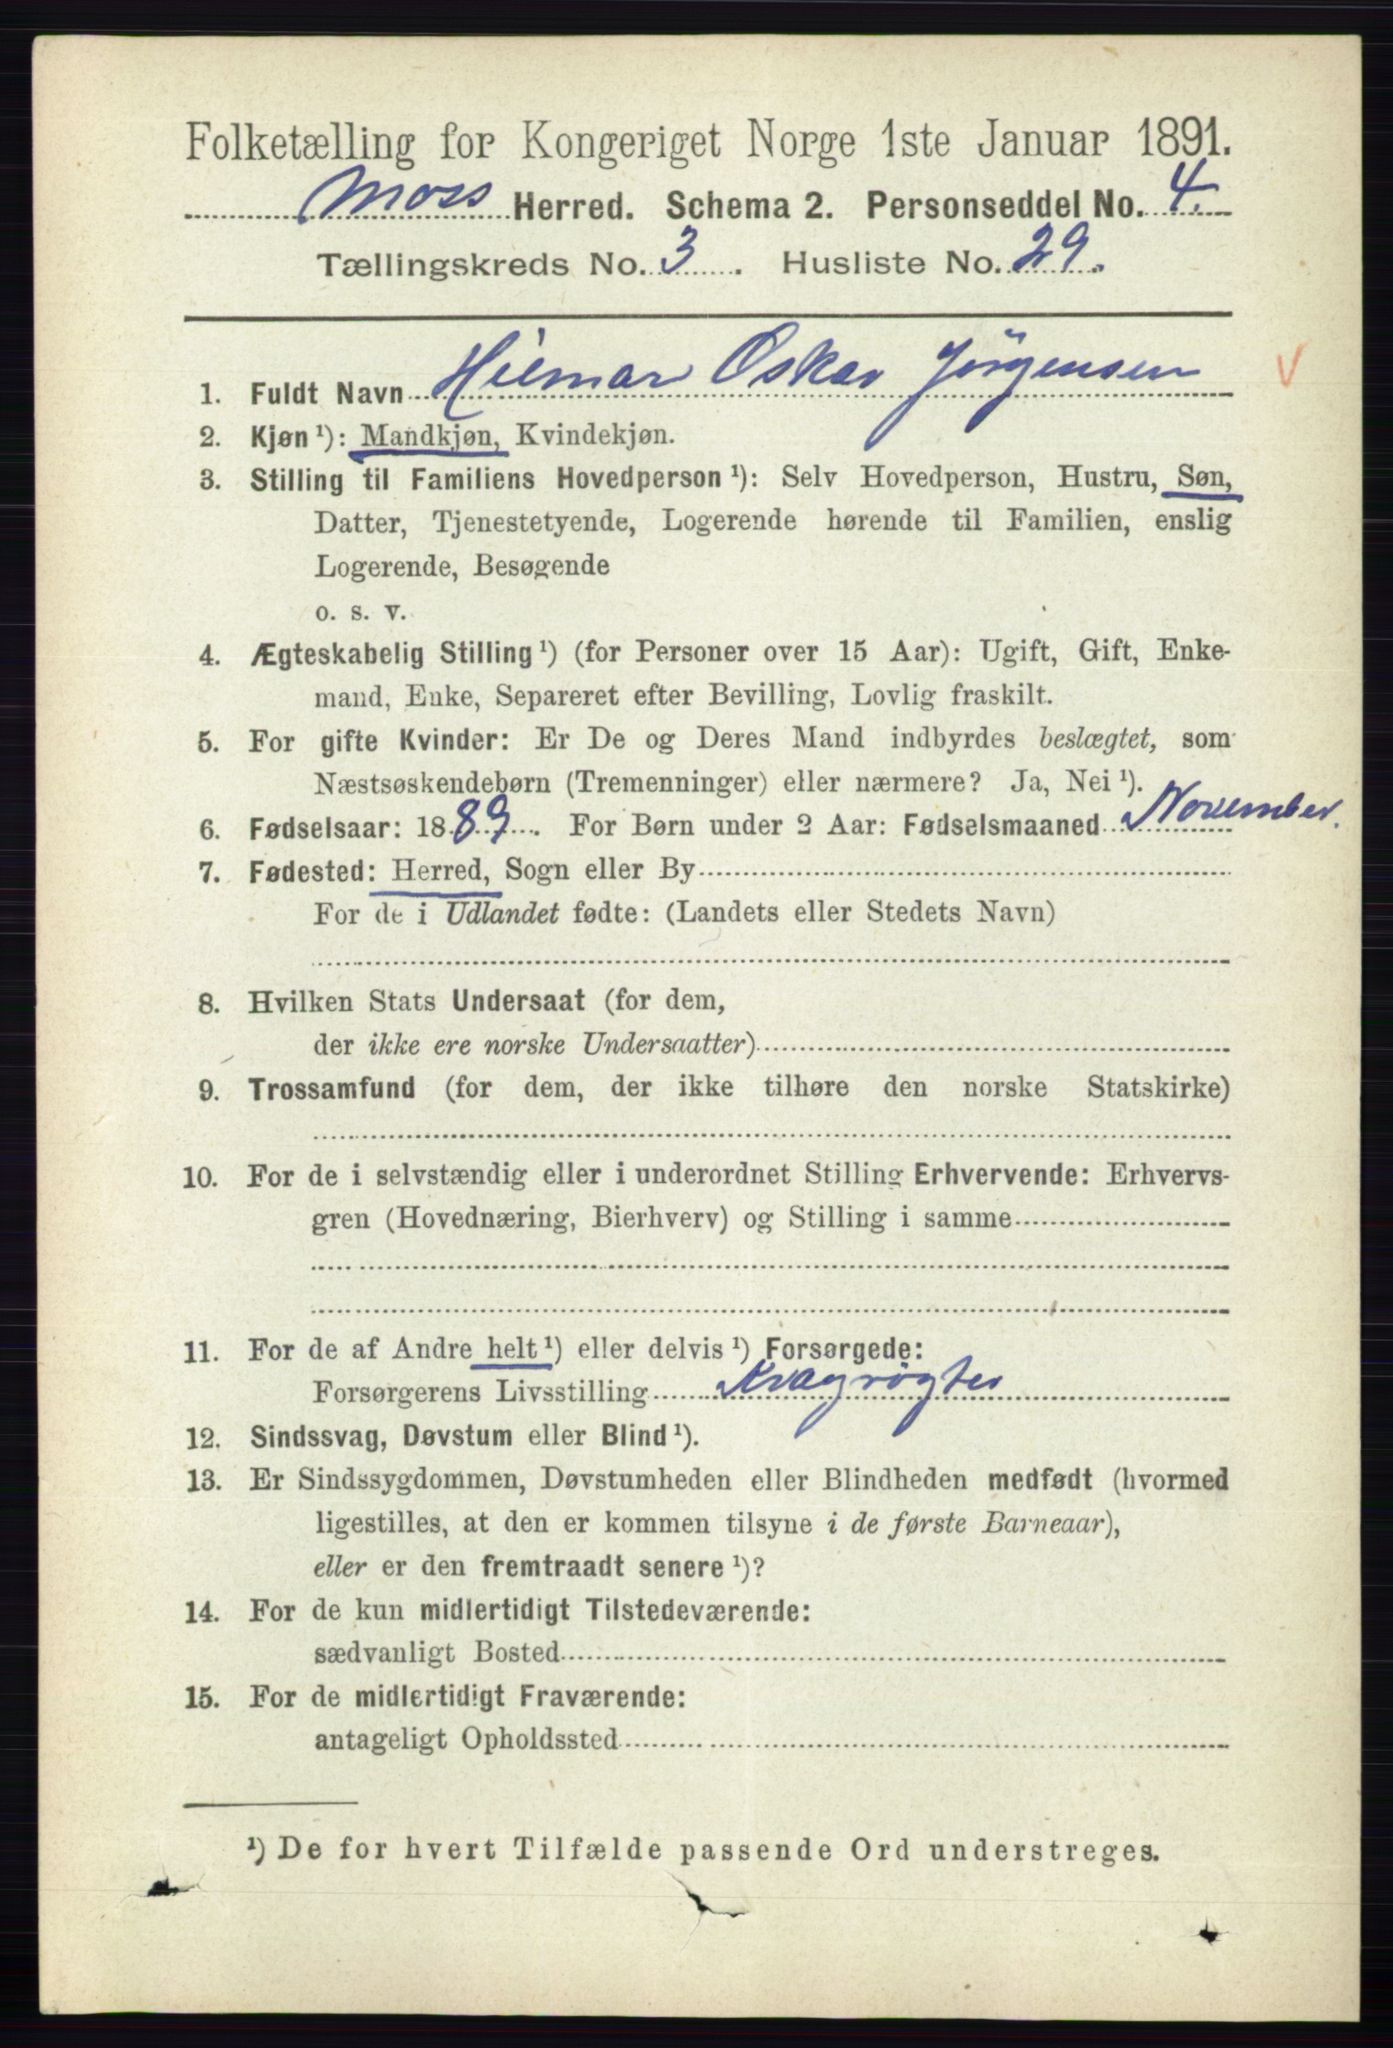 Folketælling for Kongeriget Norge 1ste Januar 1891.
Moss Herred. Schema 2. Personseddel No. 4.
Tællingskreds No. 3. Husliste No. 29.
1. Fuldt Navn Hilmar Oskar Jörgensen v
2. Kjøn ¹): Mandkjøn, Kvindekjøn.
3. Stilling til Familiens Hovedperson ¹): Selv Hovedperson, Hustru, Søn,
Datter, Tjenestetyende, Logerende hørende til Familien, enslig
Logerende, Besøgende
o. s. v.
4. Ægteskabelig Stilling ¹) (for Personer over 15 Aar): Ugift, Gift, Enke-
mand, Enke, Separeret efter Bevilling, Lovlig fraskilt.
5. For gifte Kvinder: Er De og Deres Mand indbyrdes beslægtet, som
Næstsøskendebørn (Tremenninger) eller nærmere? Ja, Nei ¹).
6. Fødselsaar: 1889. For Børn under 2 Aar: Fødselsmaaned November.
7. Fødested: Herred, Sogn eller By
For de i Udlandet fødte: (Landets eller Stedets Navn)
8. Hvilken Stats Undersaat (for dem,
der ikke ere norske Undersaatter)
9. Trossamfund (for dem, der ikke tilhøre den norske Statskirke)
10. For de i selvstændig eller i underordnet Stilling Erhvervende: Erhvervs-
gren (Hovednæring, Bierhverv) og Stilling i samme
11. For de af Andre helt ¹) eller delvis ¹) Forsørgede:
Forsørgerens Livsstilling Kvægrøgter
12. Sindssvag, Døvstum eller Blind ¹).
13. Er Sindssygdommen, Døvstumheden eller Blindheden medfødt (hvormed
ligestilles, at den er kommen tilsyne i de første Barneaar),
eller er den fremtraadt senere ¹)?
14. For de kun midlertidigt Tilstedeværende:
sædvanligt Bosted
15. For de midlertidigt Fraværende:
antageligt Opholdssted
¹) De for hvert Tilfælde passende Ord understreges.